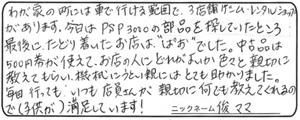 我が家の町には車で行ける範囲で、3店舗ゲーム・レンタルショップ
があります。今日はPSP3000の部品を探していたところ
最後に、たどり着いたお店は、"ぱお"でした。中古品は
500円券が使えて、お店の人にどれがよいか色々と親切に
教えてもらい、機械にうとい親にはとても助かりました。
毎回行っても、いつも店員さんが親切に何でも教えてくれるの
で(子供が)満足しています!
ニックネーム 俊ママ